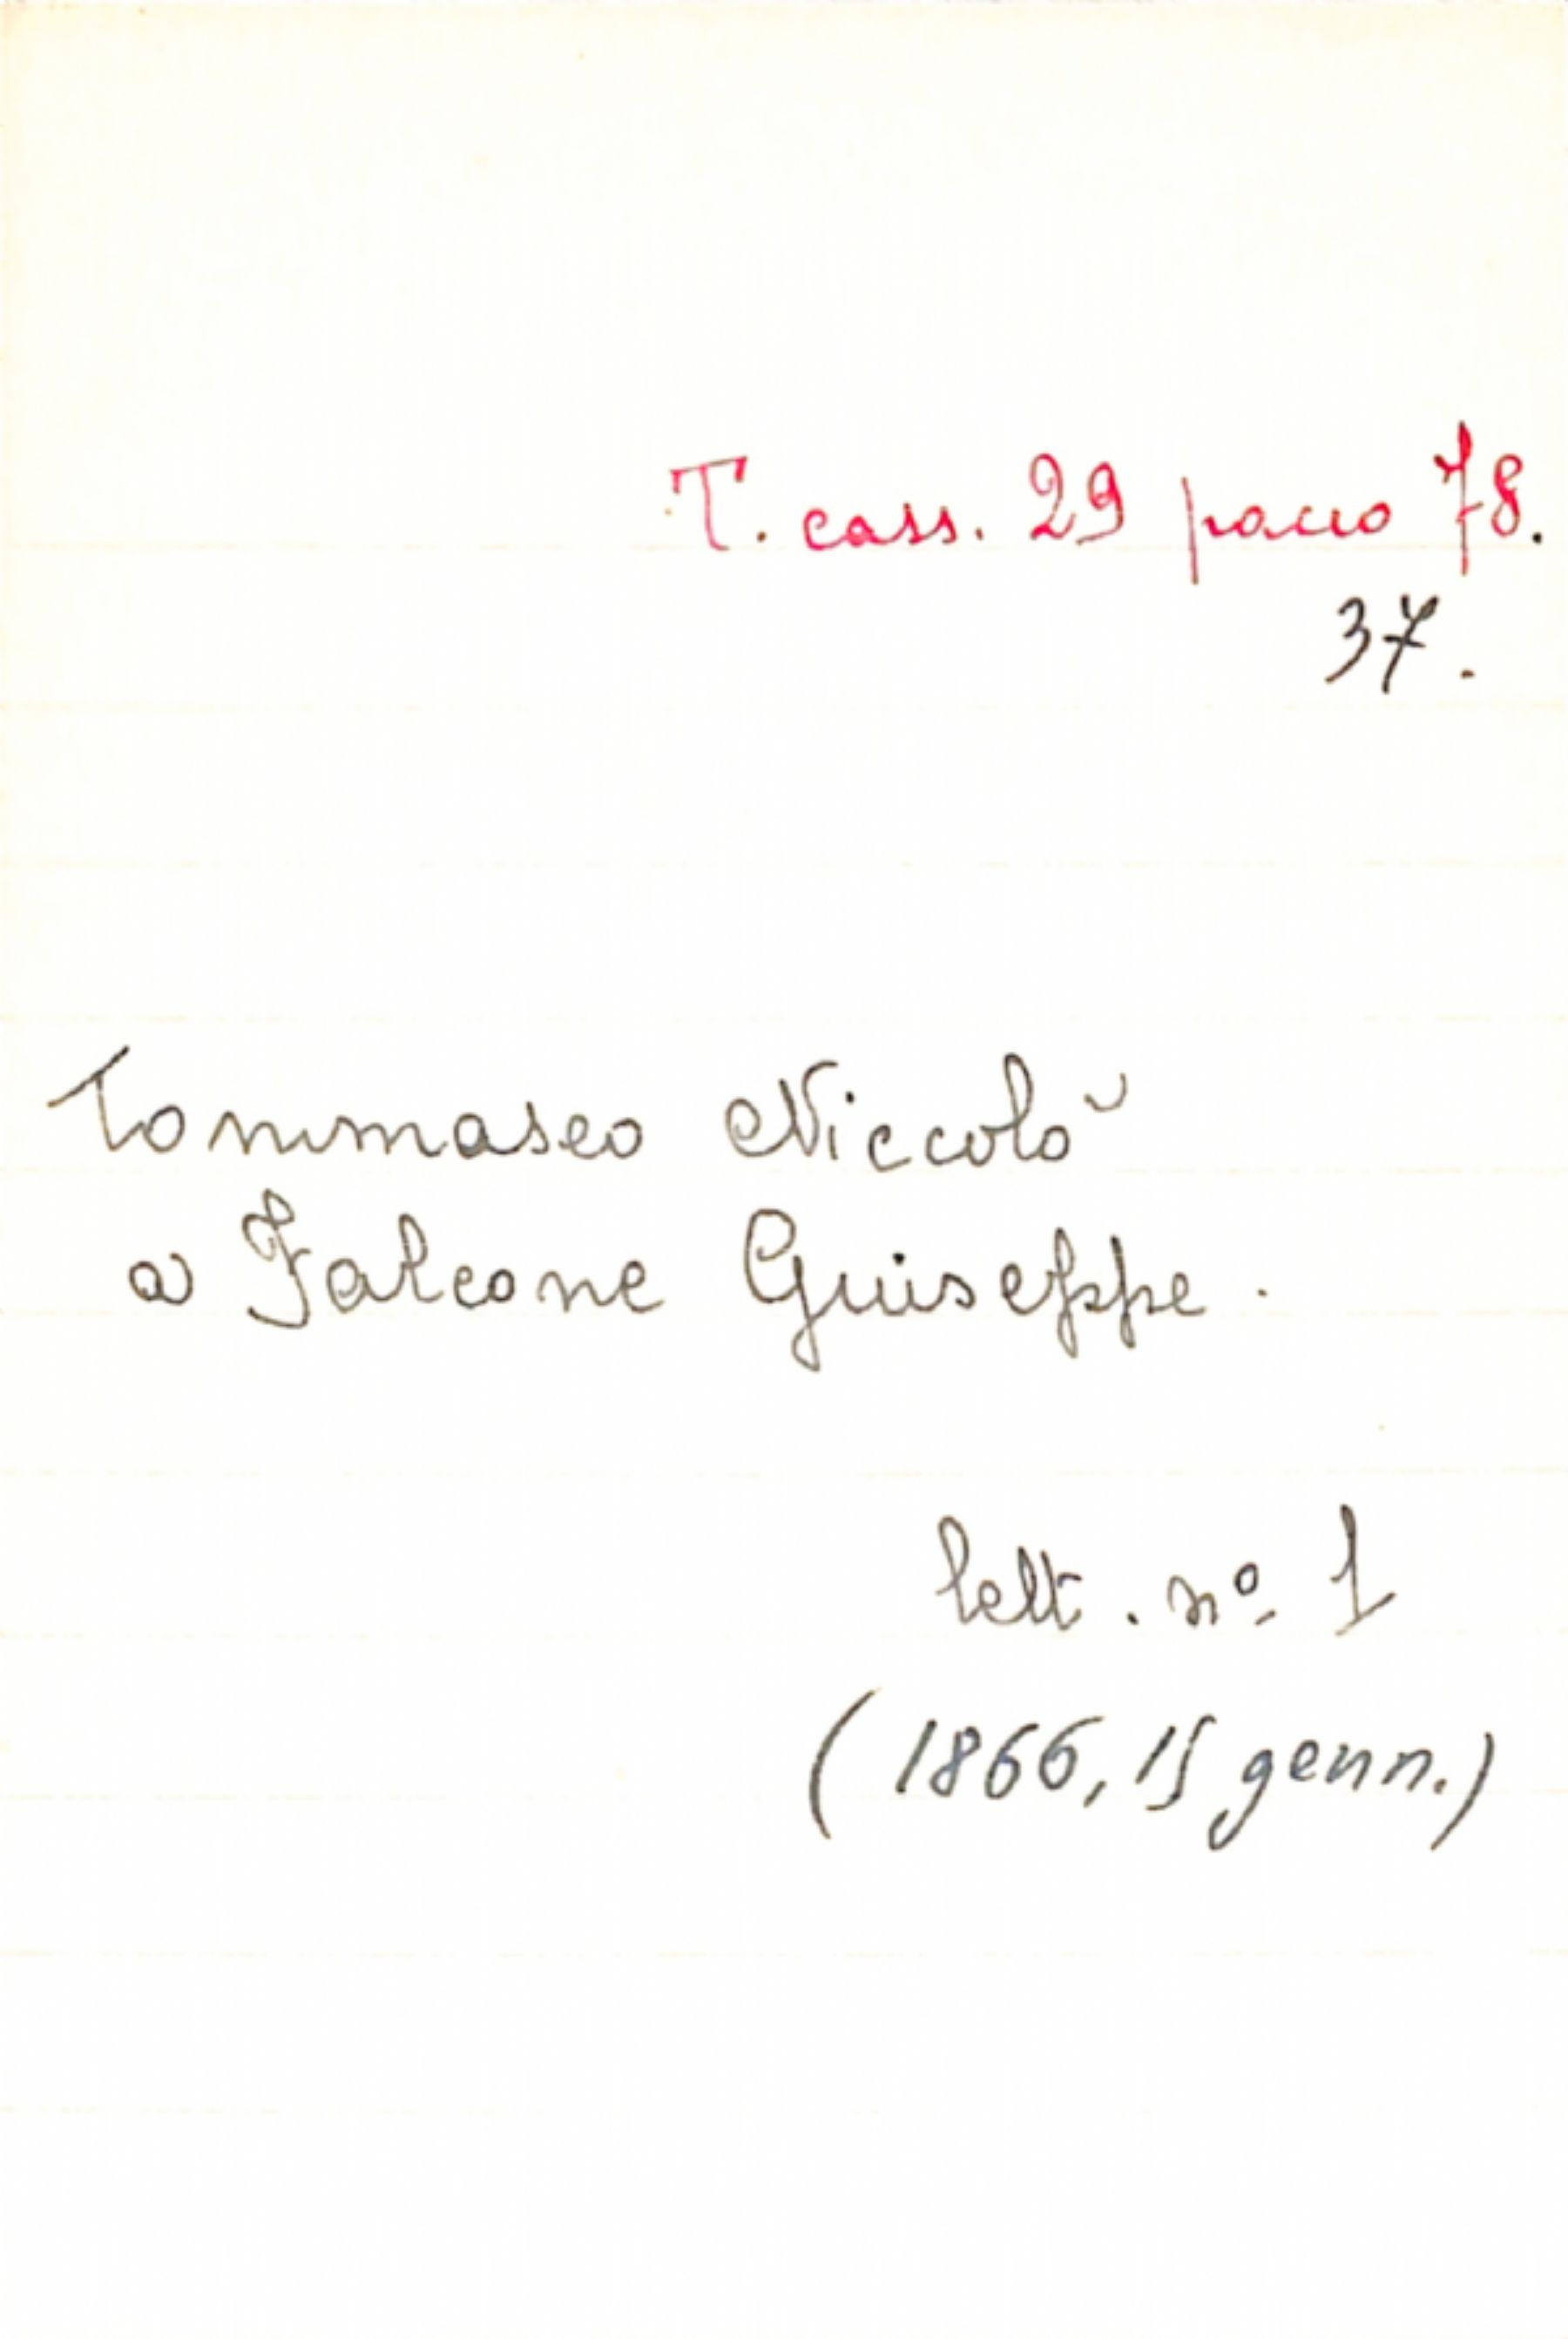 T. cass. 29 pacco 78.
37.
Tommaseo Niccolò
a Falcone Giuseppe.
lett. nº 1
(1866, 15 genn.)